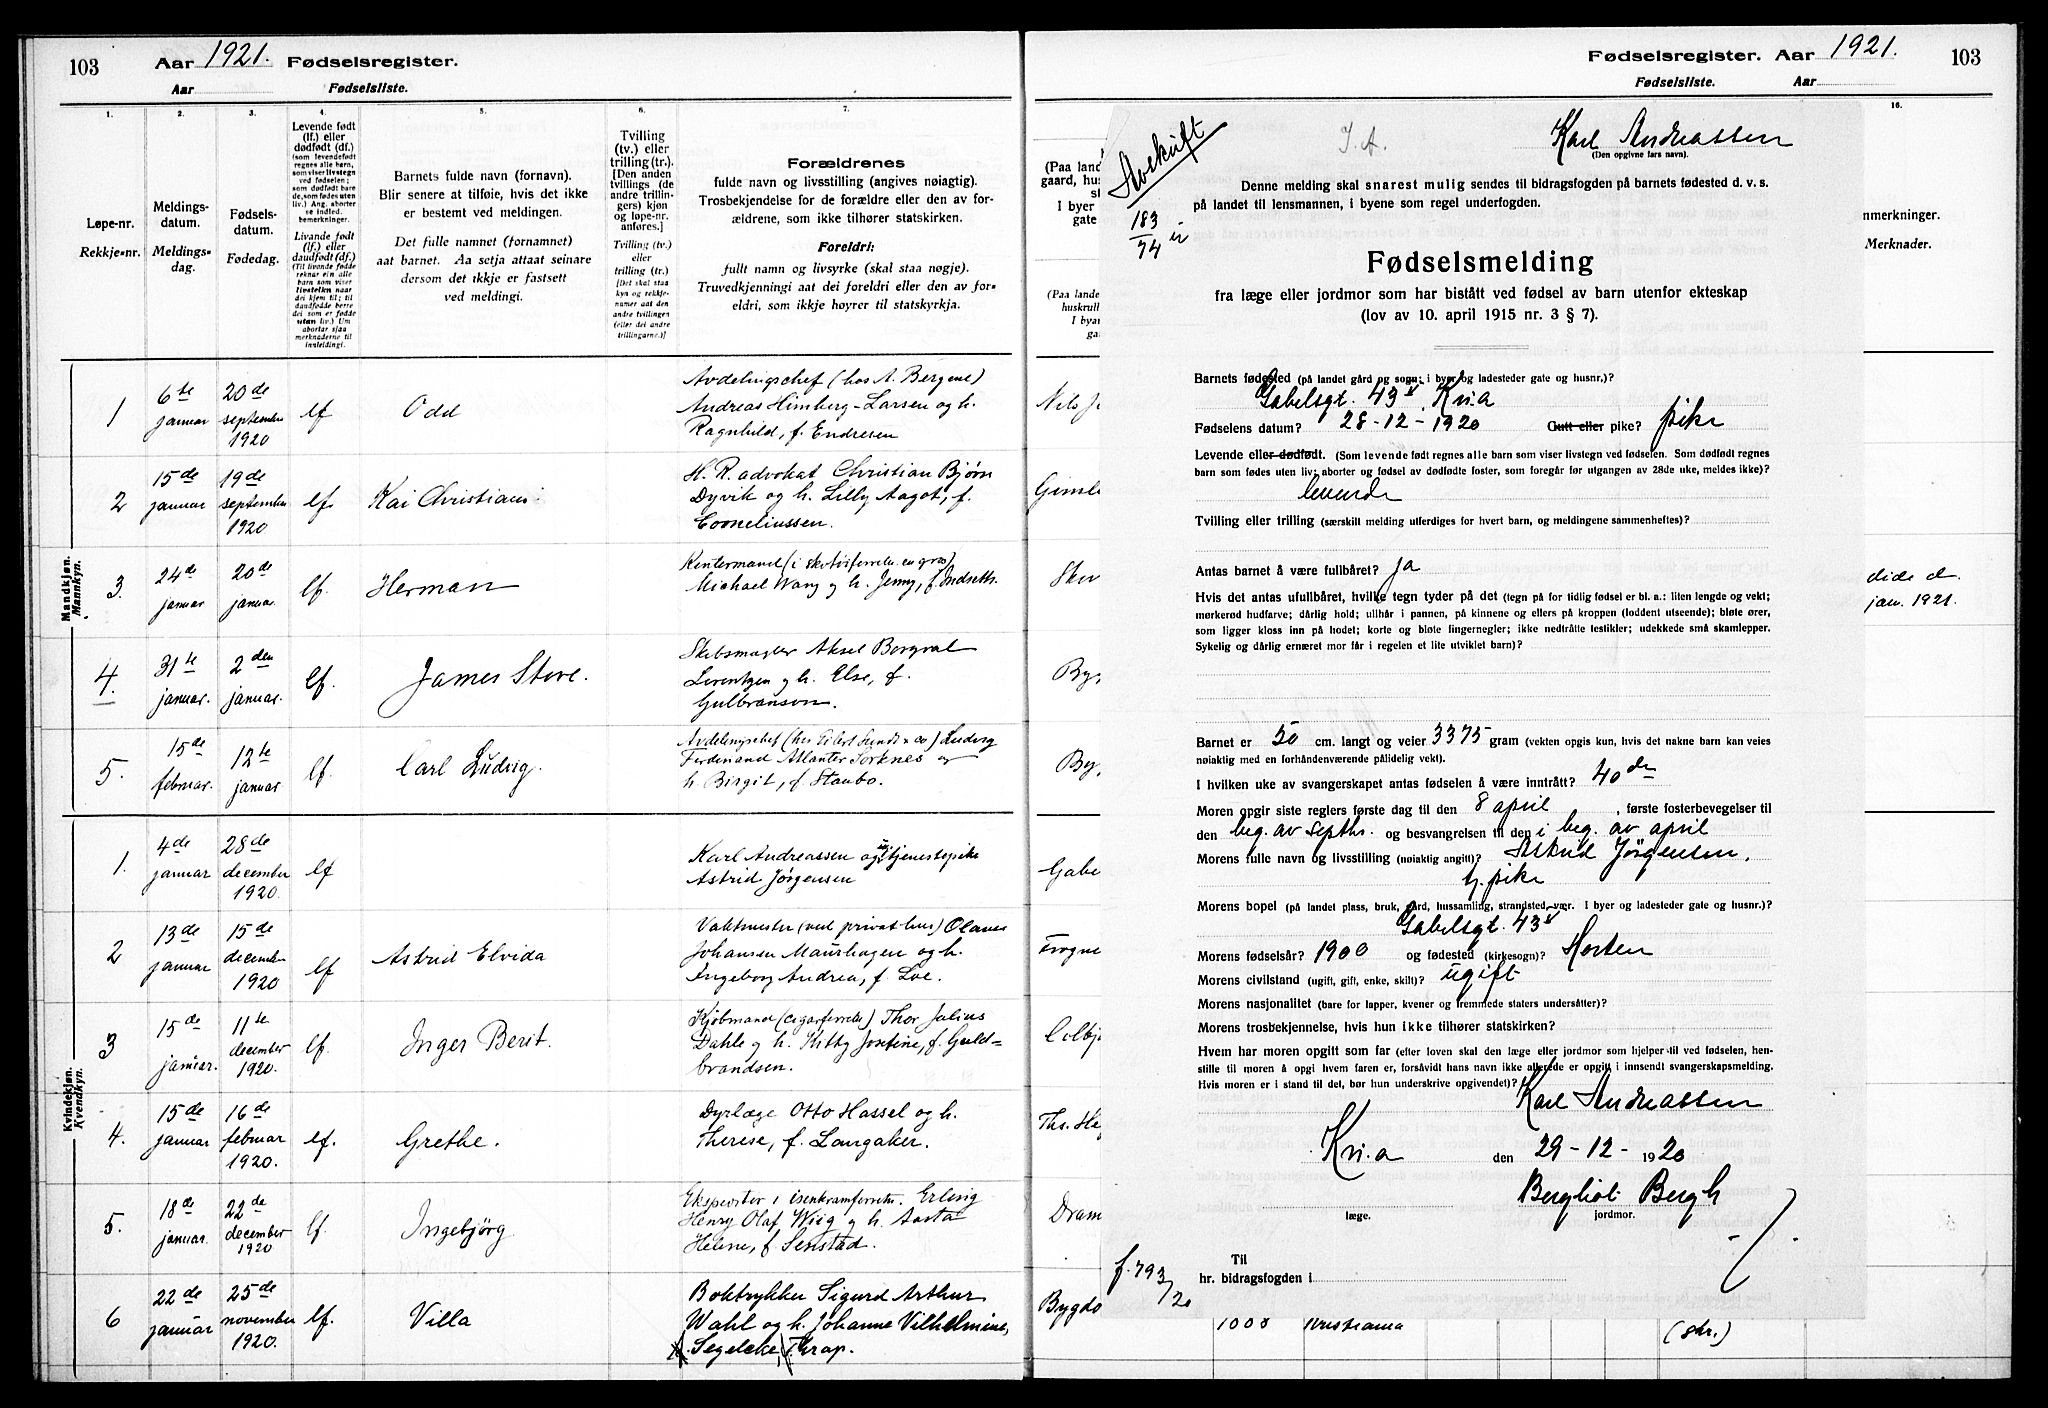 103
Aar 1921. Fødselsregister.
Aar Fødselsliste.
1.
2.
3.
4.
5.
6.
7.
Løpe-nr.
Rekkje-nr.
Meldings-
datum.
Meldings-
dag.
Fødsels-
datum.
Fødedag.
Levende født
(lf.) eller
dødfødt (df.)
(som levendefødt
regnes alle barn,
som viser livstegn
ved fødselen;
som dødfødt bare
de, som fødes uten
liv.) Ang. aborter
se indled.
bemerkninger.
Livande født
(lf.) eller
daudfødt (df.)
(Til livande fødde
reknar ein alle
barn som viser
livsteikn naar
dei kjem til; til
daudfødde berre
dei som er fødde
utan liv.) Um
abortar sjaa
merknaderne til
innleidingi.
Barnets fulde navn (fornavn).
Blir senere at tilføie, hvis det ikke
er bestemt ved meldingen.
Det fulle namnet (fornamnet)
aat barnet. Aa setja attaat seinare
dersom det ikkje er fastsett
ved meldingi.
Tvilling
(tv.) eller
trilling (tr.).
[Den anden
tvillings (de
andre trillin-
gers) kjøn
og løpe-nr.
anføres.]
Tvilling (tv.)
eller
trilling (tr.)
[Det skal staa
kyn og rekkje-
numer aat den
andre tvillingen
(eller dei andre
trillingarne.)]
Forældrenes
fulde navn og livsstilling (angives nøiagtig).
Trosbekjendelse for de forældre eller den av for-
ældrene, som ikke tilhører statskirken.
Foreldri:
fullt namn og livsyrke (skal staa nøgje).
Truvedkjenningi aat dei foreldri eller den av for-
eldri, som ikkje høyrer til statskyrkja.
Mandkjøn.
Mannkyn.
1
6te
januar
20de
september
1920
lf
Odd
Avdelingschef (hos A. Bergene)
Andreas Himberg-Larsen og h.
Ragnhild, f. Endresen
2
15de
januar
19de
september
1920
lf.
Kai Christian
H. R. advokat Christian Bjørn
Dyvik og h. Lilly Aagot, f.
Corneliussen.
3.
24de
januar
20de
januar.
lf.
Herman
Michael Wang og h. Jenny, f. Indseth.
4.
31te
januar.
2den
januar.
lf.
James Stove.
Skibsmægler Aksel Borgval
Lorentzen og h. Else, f.
Gulbranson.
5.
15de
februar.
12te
januar
lf.
Carl Ludvig.
Avdelingschef (hos Eilert Sundt & co) Ludvig
Ferdinand Atlanter Torknes og
h. Birgit, f. Staubo.
Kvindekjøn.
Kvendkyn.
1.
4de
januar
28de
december
1920.
lf
Karl Andreassen og ug. tjenestepike
Astrid Jørgensen
2
13de
januar
15de
december
1920
lf
Astrid Elvida
Vaktmester (ved privat hus) Olaves
Johansen Maurhagen og h.
Ingeborg Andrea, f. Loe.
3
15de
januar.
11te
december
1920.
lf.
Inger Berit.
Kjøbmand (cigarforretn.) Thor Julius
Dahle og h. Kitty Josefine, f. Guld-
brandsen.
4.
15de
januar
16de
februar
1920.
lf.
Grethe.
Dyrlæge Otto Hassel og h.
Therese, f. Langaker.
5.
18de
januar.
22de
december
1920
lf.
Ingebjørg
Ekspeditør i isenkramforretn. Erling
Henry Olaf Wiig og h. Aasta
Helene, f. Senstad.
6
22de
januar
25de
november
1920.
lf.
Villa
Boktrykker Sigurd Arthur
Wahl og h. Johanne Vilhelmine,
f. Segelcke, Thrap.
Fødselsregister. Aar 1921. 103
Fødselsliste. Aar
16.
(Paa land
gaard, hus
I byer
gate
(Paa lande
huskrull
I byar
ga
nmerkninger.
Merknader.
Nils J
Gimle
Skov
dide d.
jan. 1921.
Byg
Byg
Gabe
Frogne
Colbj
Ths. He
Dram
Bygdo
1000
Kristiania
(skr.)
Avskrift
183
74
J. A.
Karl Andreassen
(Den opgivne fars navn).
Denne melding skal snarest mulig sendes til bidragsfogden på barnets fødested d. v. s.
på landet til lensmannen, i byene som regel underfogden.
Fødselsmelding
fra læge eller jordmor som har bistått ved fødsel av barn utenfor ekteskap
(lov av 10. april 1915 nr. 3 § 7).
Barnets fødested (på landet gård og sogn; i byer og ladesteder gate og husnr.)?
Gabelsgt. 43 V, Kr.a
Fødselens datum? 28-12-1920 Gutt eller pike? pike
Levende eller dødfødt. (Som levende født regnes alle barn som viser livstegn ved fødselen. Som dødfødt regnes
barn som fødes uten liv; aborter og fødsel av dødfødte foster, som foregår før utgangen av 28de uke, meldes ikke)?
levende
Tvilling eller trilling (særskilt melding utferdiges for hvert barn, og meldingene sammenheftes)?
Antas barnet å være fullbåret? ja
Hvis det antas ufullbåret, hvilke tegn tyder på det (tegn på for tidlig fødsel er bl. a.: liten lengde og vekt;
mørkerød hudfarve; dårlig hold; ullhår i pannen, på kinnene og ellers på kroppen (loddent utseende); bløte ører,
som ligger kloss inn på hodet; korte og bløte fingernegler; ikke nedtråtte testikler; udekkede små skamlepper.
Sykelig og dårlig ernæret mor får i regelen et lite utviklet barn)?
Barnet er 50 cm. langt og veier 3375 gram (vekten opgis kun, hvis det nakne barn kan veies
nøiaktig med en forhåndenværende pålidelig vekt).
I hvilken uke av svangerskapet antas fødselen å være inntrått? 40de
Moren opgir siste reglers første dag til den 8 april , første fosterbevegelser til
den beg. av septbr. og besvangrelsen til den i beg. av april
Morens fulle navn og livsstilling (nøiaktig angitt)? Astrid Jørgensen,
tj. pike
Morens bopel (på landet plass, bruk, gård, hussamling, strandsted, vær. I byer og ladesteder gate og husnr.)?
Gabelsgt. 43 V
Morens fødselsår? 1900 og fødested (kirkesogn)? Horten
Morens civilstand (ugift, gift, enke, skilt)? ugift
Morens nasjonalitet (bare for lapper, kvener og fremmede staters undersåtter)?
Morens trosbekjennelse, hvis hun ikke tilhører statskirken?
Hvem har moren opgitt som far (efter loven skal den læge eller jordmor som hjelper til ved fødselen, hen-
stille til moren å opgi hvem faren er, forsåvidt hans navn ikke allerede er opgitt i innsendt svangerskapsmelding.
Hvis moren er i stand til det, bør hun underskrive opgivendet)?
Karl Andreassen
Kr.a den 29-12-1920
Bergliot Bergh
læge. jordmor.
Til
hr. bidragsfogden i
f. 793/20